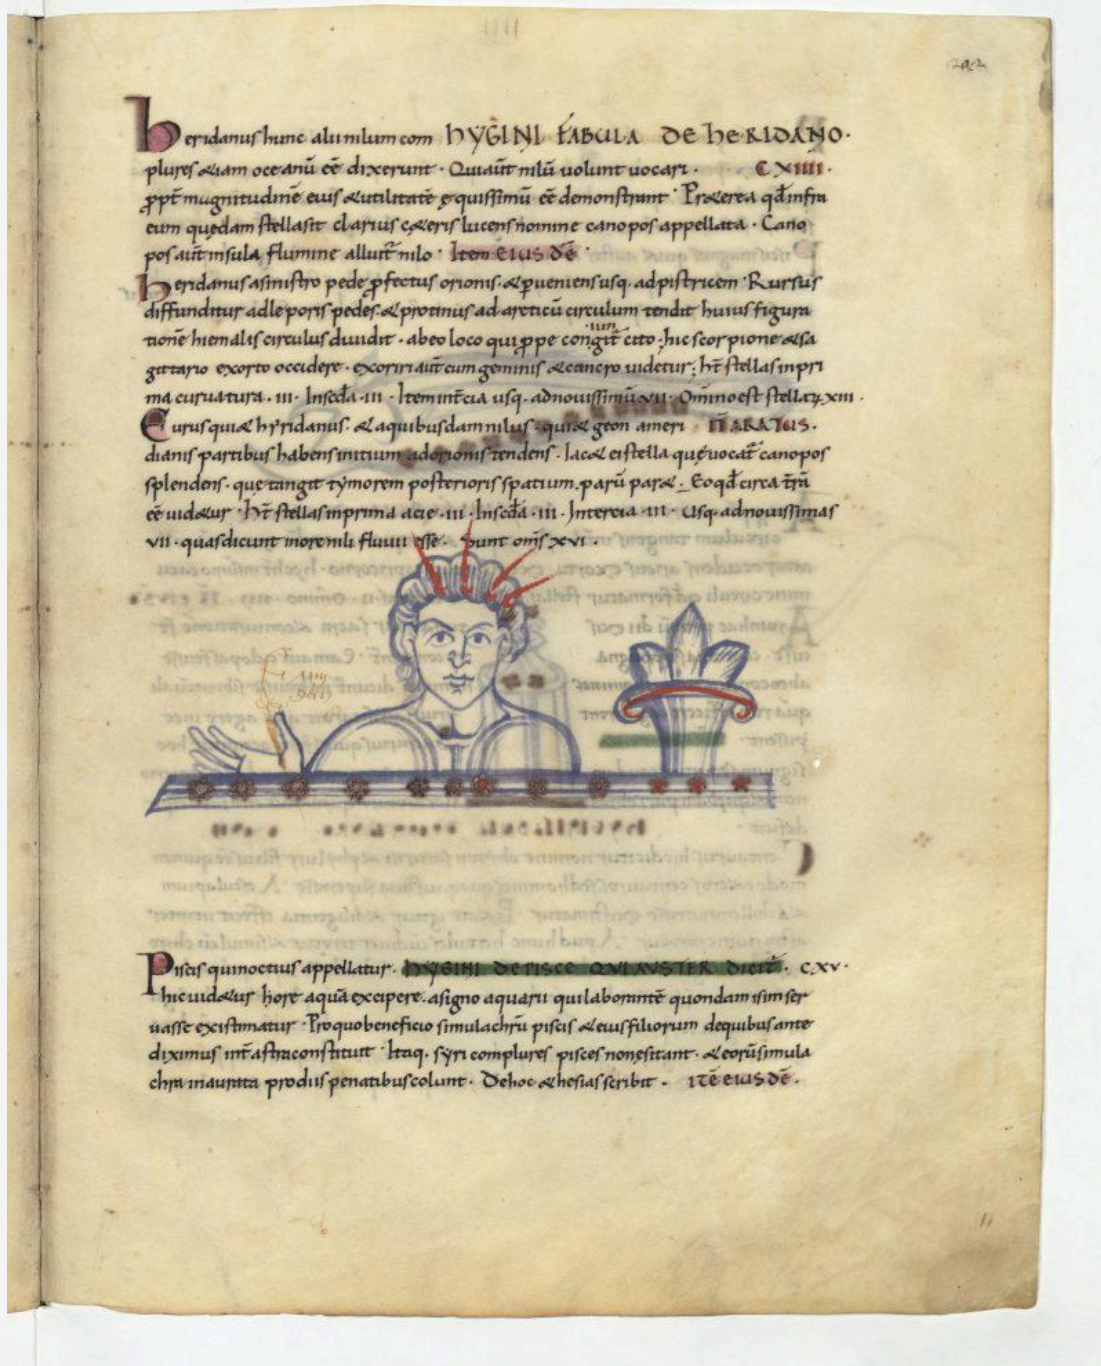 292
heridanus hunc alii nilum com hYGINI FABULA DE heRIDANO·
plures &iam oceanū eē dixerunt · Qui aūt nilū uolunt uocari · CXIIII·
ꝓpt̄ magnitudinē eius &utilitatē ęquissimū eē demonstrant · Pr&erea qd̄ infra
eum quędam stella sit clarius c&eris lucens nomine canopos appellata · Cano
pos aūt insula flumine alluit̄ nilo · Item EIUSDĒ ·
heridanus asinistro pede ꝓfectus orionis· &ꝑueniens usq· ad pistricem · Rursus
diffunditur ad leporis pedes· &protinus ad arcticū circulum tendit huius figura
tionē hiemalis circulus diuidit · ab eo loco qui ꝓpe congit̄ cito ; hic scorpione &sa
iun
gittario exorto occidere · exoriri aūt cum geminis &cancro uidetur ; ht̄ stellas in pri
ma curuatura · III · In scd̄a · III · Item int̄cia usq· ad nouissimū VII · Omino est stellaꝝ XIII ·
Eurus qui & hyridanus· & a quibusdam nilus· qui & geon ameri ITĒ ARATUS·
dianis partibus habens initium ad orionis tendens · Iac& ei stella quę uocat̄ canopos
splendens· que tangit tymorem posterioris spatium· parū par& · Eo qd̄ circa t̄rā
eē uid&ur · Ht̄ stellas in prima acie · III · In scd̄a · III · In tercia · III · Usq· ad nouissimas
VII · quas dicunt more nili fluuii esse · Sunt om̄s XVI ·
Piscis qui noctius appellatur · hYGINI DE PISCE QUI AUSTER DICIT̄ · CXV·
hic uid&ur hore aquā excipere· a signo aquarii qui laborantē quondam isim ser
uasse existimatur · Pro quo beneficio simulachrū piscis &eius filiorum de quibus ante
diximus int̄ astra constituit · Itaq· syri complures pisces non ęsitant · & eorū simula
chra inaurata pro diis penatibus colunt · De hoc &hesias scribit · ITĒ EIUSDĒ ·